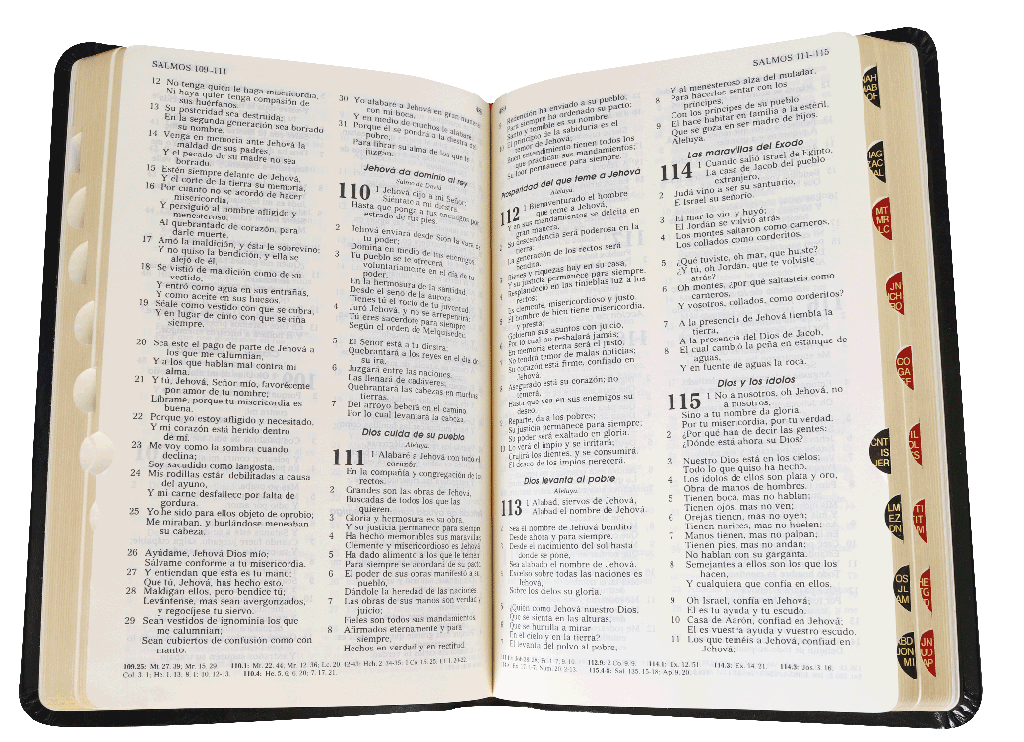 SALMOS 109-111
12 No tenga quien le haga misericordia,
Ni haya quien tenga compasión de
sus huérfanos.
13 Su posteridad sea destruida;
En la segunda generación sea borrado
su nombre.
14 Venga en memoria ante Jehová la
maldad de sus padres,
Y el pecado de su madre no sea
borrado.
15 Estén siempre delante de Jehová,
Y él corte de la tierra su memoria,
16 Por cuanto no se acordó de hacer
misericordia,
Y persiguió al hombre afligido y
menesteroso,
Al quebrantado de corazón, para
darle muerte.
17 Amó la maldición, y ésta le sobrevino;
Y no quiso la bendición, y ella se
alejó de él.
18 Se vistió de maldición como de su
vestido,
Y entró como agua en sus entrañas,
Y como aceite en sus huesos.
19 Séale como vestido con que se cubra,
Y en lugar de cinto con que se ciña
siempre.
20 Sea este el pago de parte de Jehová a
los que me calumnian,
Y a los que hablan mal contra mi
alma.
21 Y tú, Jehová, Señor mío, favoréceme
por amor de tu nombre;
Líbrame, porque tu misericordia es
buena.
22 Porque yo estoy afligido y necesitado,
Y mi corazón está herido dentro
de mí.
23 Me voy como la sombra cuando
declina;
Soy sacudido como langosta.
24 Mis rodillas están debilitadas a causa
del ayuno,
Y mi carne desfallece por falta de
gordura.
25 Yo he sido para ellos objeto de oprobio;
Me miraban, y burlándose meneaban
su cabeza.
26 Ayúdame, Jehová Dios mío;
Sálvame conforme a tu misericordia.
27 Y entiendan que esta es tu mano;
Que tú, Jehová, has hecho esto.
28 Maldigan ellos, pero bendice tú;
Levántense, mas sean avergonzados,
y regocíjese tu siervo.
29 Sean vestidos de ignominia los que
me calumnian;
Sean cubiertos de confusión como con
manto.
30 Yo alabaré a Jehová en gran manera
con mi boca,
Y en medio de muchos le alabaré.
31 Porque él se pondrá a la diestra del
pobre,
Para librar su alma de los que le
juzgan.
Jehová da dominio al rey
Salmo de David.
110 1 Jehová dijo a mi Señor:
Siéntate a mi diestra,
Hasta que ponga a tus enemigos por
estrado de tus pies.
2 Jehová enviará desde Sion la vara de
tu poder;
Domina en medio de tus enemigos.
3 Tu pueblo se te ofrecerá
voluntariamente en el día de tu
poder,
En la hermosura de la santidad.
Desde el seno de la aurora
Tienes tú el rocío de tu juventud.
4 Juró Jehová, y no se arrepentirá:
Tú eres sacerdote para siempre
Según el orden de Melquisedec.
5 El Señor está a tu diestra;
Quebrantará a los reyes en el día de
su ira.
6 Juzgará entre las naciones,
Las llenará de cadáveres;
Quebrantará las cabezas en muchas
tierras.
7 Del arroyo beberá en el camino,
Por lo cual levantará la cabeza.
Dios cuida de su pueblo
Aleluya.
111 1 Alabaré a Jehová con todo el
corazón
En la compañía y congregación de los
rectos.
2 Grandes son las obras de Jehová,
Buscadas de todos los que las
quieren.
3 Gloria y hermosura es su obra,
Y su justicia permanece para siempre.
4 Ha hecho memorables sus maravillas;
Clemente y misericordioso es Jehová.
5 Ha dado alimento a los que le temen;
Para siempre se acordará de su pacto.
6 El poder de sus obras manifestó a su
pueblo,
Dándole la heredad de las naciones.
7 Las obras de sus manos son verdad y
juicio;
Fieles son todos sus mandamientos,
8 Afirmados eternamente y para
siempre,
Hechos en verdad y en rectitud.
109.25: Mt. 27. 39; Mr. 15. 29.
SALMOS 111-115
9 Redención ha enviado a su pueblo;
Para siempre ha ordenado su pacto;
Santo y temible es su nombre.
10 El principio de la sabiduría es el
temor de Jehová;
Buen entendimiento tienen todos los
que practican sus mandamientos;
Su loor permanece para siempre.
Prosperidad del que teme a Jehová
Aleluya.
112 1 Bienaventurado el hombre
que teme a Jehová,
Y en sus mandamientos se deleita en
gran manera.
2 Su descendencia será poderosa en la
tierra;
La generación de los rectos será
bendita.
3 Bienes y riquezas hay en su casa,
Y su justicia permanece para siempre.
4 Resplandeció en las tinieblas luz a los
rectos;
Es clemente, misericordioso y justo.
5 El hombre de bien tiene misericordia,
y presta;
Gobierna sus asuntos con juicio,
6 Por lo cual no resbalará jamás;
En memoria eterna será el justo.
7 No tendrá temor de malas noticias;
Su corazón está firme, confiado en
Jehová.
8 Asegurado está su corazón; no
temerá,
Hasta que vea en sus enemigos su
deseo.
9 Reparte, da a los pobres;
Su justicia permanece para siempre;
Su poder será exaltado en gloria.
10 Lo verá el impío y se irritará;
Crujirá los dientes, y se consumirá.
El deseo de los impíos perecerá.
Dios levanta al pobre
Aleluya.
113 1 Alabad, siervos de Jehová,
Alabad el nombre de Jehová.
2 Sea el nombre de Jehová bendito
Desde ahora y para siempre.
3 Desde el nacimiento del sol hasta
donde se pone,
Sea alabado el nombre de Jehová.
4 Excelso sobre todas las naciones es
Jehová,
Sobre los cielos su gloria.
5 ¿Quién como Jehová nuestro Dios,
Que se sienta en las alturas,
6 Que se humilla a mirar
En el cielo y en la tierra?
7 El levanta del polvo al pobre,
Y al menesteroso alza del muladar,
8 Para hacerlos sentar con los
príncipes,
Con los príncipes de su pueblo.
9 El hace habitar en familia a la estéril,
Que se goza en ser madre de hijos.
Aleluya.
Las maravillas del Exodo
114 1 Cuando salió Israel de Egipto,
La casa de Jacob del pueblo
extranjero,
2 Judá vino a ser su santuario,
E Israel su señorío.
3 El mar lo vio, y huyó;
El Jordán se volvió atrás.
4 Los montes saltaron como carneros,
Los collados como corderitos.
5 ¿Qué tuviste, oh mar, que huiste?
¿Y tú, oh Jordán, que te volviste
atrás?
6 Oh montes, ¿por qué saltasteis como
carneros,
Y vosotros, collados, como corderitos?
7 A la presencia de Jehová tiembla la
tierra,
A la presencia del Dios de Jacob,
8 El cual cambió la peña en estanque de
aguas,
Y en fuente de aguas la roca.
Dios y los ídolos
115 1 No a nosotros, oh Jehová, no
a nosotros,
Sino a tu nombre da gloria,
Por tu misericordia, por tu verdad.
2 ¿Por qué han de decir las gentes:
¿Dónde está ahora su Dios?
3 Nuestro Dios está en los cielos;
Todo lo que quiso ha hecho.
4 Los ídolos de ellos son plata y oro,
Obra de manos de hombres.
5 Tienen boca, mas no hablan;
Tienen ojos, mas no ven;
6 Orejas tienen, mas no oyen;
Tienen narices, mas no huelen;
7 Manos tienen, mas no palpan;
Tienen pies, mas no andan;
No hablan con su garganta.
8 Semejantes a ellos son los que los
hacen,
Y cualquiera que confía en ellos.
9 Oh Israel, confía en Jehová;
El es tu ayuda y tu escudo.
10 Casa de Aarón, confiad en Jehová;
El es vuestra ayuda y vuestro escudo.
11 Los que teméis a Jehová, confiad en
Jehová;
114.1: Ex. 12. 51. 114.3: Ex. 14. 21. 114.3: Jos. 3. 16.
115.4-8: Sal. 135. 15-18; Ap. 9. 20.
MT
MR
LC
CO
GA